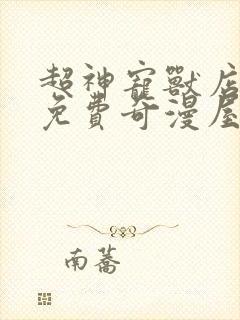 超神寵獸店
免費奇漫屋
南蕎